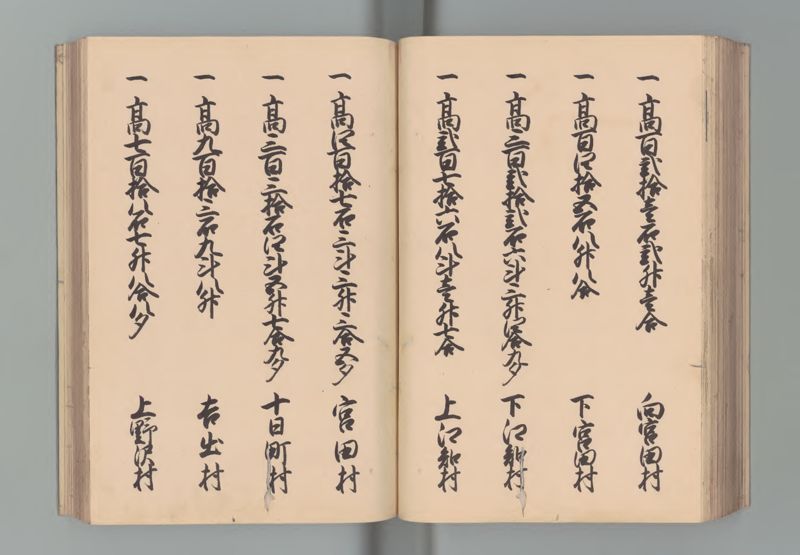 一高百弐拾壱石弐升壱合 向宮田村
一高百四拾五石八升八合 下宮田村
一高三百弐拾弐石六斗三升四合九夕 下江釣村
一高弐百七拾六石八斗壱升七合 上江釣村
一高四百拾七石三斗三升三合五夕 宮田村
一高三百三拾石四斗五升七合九夕 十日町村
一高九百拾三石九斗八升 吉出村
一高七百拾八石七升八合八夕 上野沢村